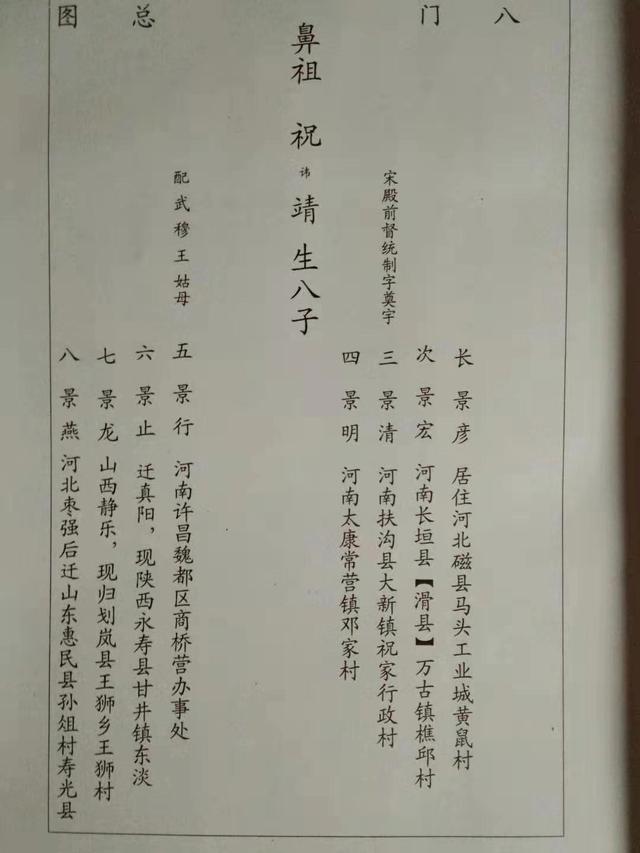 八门总图
宋殿前督统制字奠宇
鼻祖 祝讳靖生八子
配武穆王姑母
长 景彦 居住河北磁县马头工业城黄鼠村
次 景宏 河南长垣县【滑县】万古镇樵邱村
三 景清 河南扶沟县大新镇祝家行政村
四 景明 河南太康常营镇邓家村
五 景行 河南许昌魏都区商桥营办事处
六 景止 迁真阳，现陕西永寿县甘井镇东淡
七 景龙 山西静乐，现归划岚县王狮乡王狮村
八 景燕 河北枣强后迁山东惠民县孙俎村寿光县